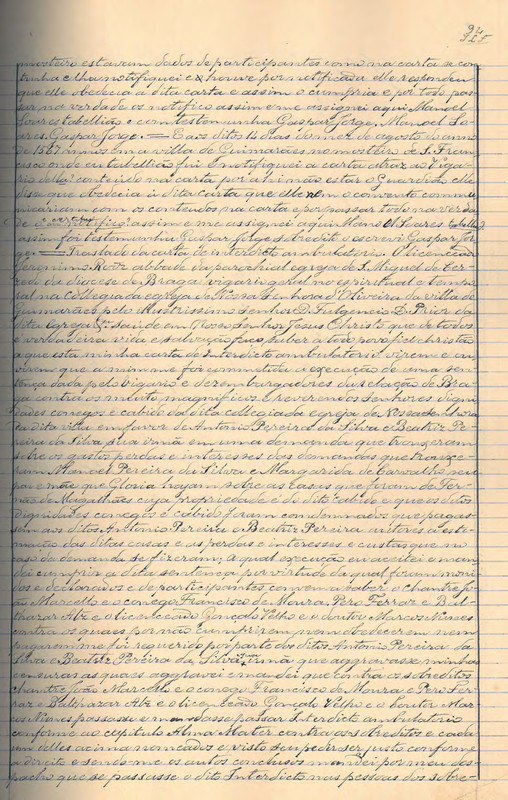 94
mosteiro estavam dados de participantes como na carta se con-
tinha e lha notifiquei e houve por notificada elle respondeu
que elle obedecia a dita carta e assim o cumpria e por todo pas-
sar na verdade os notifico assim e me assignei aqui Manoel
Soares tabellião e com testemunha Gaspar Jorge. Manoel So-
ares. Gaspar Jorge. = E aos ditos 14 dias do mez de agosto do anno
de 1567 annos na villa de Guimarães no mosteiro de S. Fran-
cisco onde eu tabellião fui e notifiquei a carta atraz ao Viga-
rio della conteudo na carta por ahi não estar o Guardião elle
disse que obedecia á dita carta que elle nem o convento commu-
nicariam com os contendos na carta e por passar todo na verda-
de o certifico assim e me assignei aqui Manoel Soares tabellião
assim foi testemunha Gaspar Jorge sobredito o escrevi Gaspar Jor-
ge. = Traslado da carta de interdicto ambulatorio. O licenceado
Jeronimo Rotz abbade da parochial egreja de S. Miguel de Cer-
zedo da diocese de Braga vigario geral no espiritual e tempo-
ral na Collegiada egreja de Nossa Senhora d'Oliveira da villa de
Guimarães pelo Illustrissimo senhor D. Fulgencio D. Prior da
dita egreja &. Saude em Nosso Senhor Jesus Christo que de todos
é verdadeira vida e salvação faço saber a todo poro fiel christão
a que esta minha carta de Interdicto ambulatorio virem e ou-
virem que a mim me foi commettida a execução de uma sen-
tença dada pelo vigario e dezembargadores da relação de Bra-
ga contra os muito magnificos e reverendos senhores digni-
dades conegos e cabido da dita collegiada egreja de Nossa Senhora
da dita villa em favor de Antonio Pereira da Silva e Beatriz Pe-
reira da Silva sua irmã em uma demanda que trouxeram
sobre os gastos perdas e interesses das demandas que trouxe-
ram Manoel Pereira da Silva e Margarida de Carvalho seu
pae e mãe que Gloria hajam sobre as casas que foram de Fer-
não de Magalhães cuja propriedade é do dito cabido e que os ditos
dignidades conegos e cabido foram condemnados que pagas-
sem aos ditos Antonio Pereira e Beatriz Pereira autores a este-
mação das ditas casas e as perdas e interesses e custas que no
caso da demanda se fizeram, a qual execução eu acceitei e man-
dei cumprir a dita sentença por virtude da qual foram moni-
dos e declarados e de participantes convem a saber o Chantre Jo-
ão Marcello e o conego Francisco de Moura, Pero Ferraz e Bal-
thazar Alz e o licenceado Gonçalo Velho e o doutor Marcos Nunes
contra os quaes por não cumprirem nem obedecerem nem
pagarem me foi requerido por parte dos ditos Antonio Pereira da
Silva e Beatriz Pereira da Silva sua irmã que aggravasse minhas
censuras as quaes aggravei e mandei que contra os sobreditos
chantre João Marcello e o conego Francisco de Moura e Pero Fer-
raz e Balthazar Alz e o licenceado Gonçalo Velho e o Doutor Mar-
cos Nunes passasse e mandasse passar Interdicto ambulatorio
conforme ao capitulo Alma Mater contra os sobreditos e cada
um delles acima nomeados e visto seu pedir ser justo conforme
a direito e sendo-me os autos conclusos mandei por meu des-
pacho que se passasse o dito Interdicto nas pessoas dos sobre-